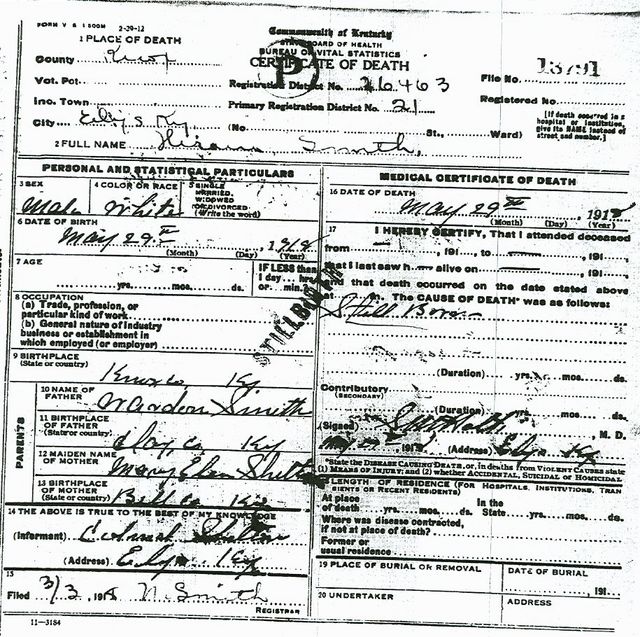 FORM V S 1 500M 2-29-12
Commonwealth of Kentucky
STATE BOARD OF HEALTH
BUREAU OF VITAL STATISTICS
CERTIFICATE OF DEATH
P
1 PLACE OF DEATH
County Knox
Vot. Pct.
Inc. Town
City
Registration District No. 26463
Primary Registration District No. 21
(No. St., Ward)
File No. 13791
Registered No.
[If death occurred in a hospital or institution, give its NAME instead of street and number.]
2 FULL NAME Hiram Smith
PERSONAL AND STATISTICAL PARTICULARS
3 SEX
Male
4 COLOR OR RACE
White
5 SINGLE
MARRIED,
WIDOWED
OR DIVORCED
(Write the word)
6 DATE OF BIRTH
May 29th, 1918
(Month) (Day) (Year)
7 AGE
yrs. mos. ds.
IF LESS than
1 day, hrs.
or min.
8 OCCUPATION
(a) Trade, profession, or
particular kind of work
(b) General nature of industry
business or establishment in
which employed (or employer)
STILLBORN
9 BIRTHPLACE
(State or country)
Knox co. Ky
PARENTS
10 NAME OF
FATHER
Smith
11 BIRTHPLACE
OF FATHER
(State or country)
Clay co Ky
12 MAIDEN NAME
OF MOTHER
Mary
13 BIRTHPLACE
OF MOTHER
Bell co Ky
14 THE ABOVE IS TRUE TO THE BEST OF MY KNOWLEDGE
(Informant)
(Address) Ky
15
Filed 3/3, 191 N. Smith
REGISTRAR
11-3184
MEDICAL CERTIFICATE OF DEATH
16 DATE OF DEATH
May 29th, 1918
(Month) (Day) (Year)
17 I HEREBY CERTIFY, That I attended deceased
from , 191 , to , 191 ,
that I last saw h alive on , 191 ,
and that death occurred on the date stated above
at m. The CAUSE OF DEATH* was as follows:
Still Born
(Duration) yrs. mos. ds.
Contributory
(SECONDARY)
(Duration) yrs. mos. ds.
(Signed) M. D.
May 29, 191 (Address) Ky
*State the DISEASE CAUSING DEATH, or, in deaths from VIOLENT CAUSES state
(1) MEANS OF INJURY; and (2) whether ACCIDENTAL, SUICIDAL or HOMICIDAL
LENGTH OF RESIDENCE (FOR HOSPITALS, INSTITUTIONS, TRAN
SIENTS OR RECENT RESIDENTS)
At place of death yrs. mos. ds. In the State yrs. mos. ds.
Where was disease contracted,
if not at place of death?
Former or
usual residence
19 PLACE OF BURIAL OR REMOVAL
DATE OF BURIAL
, 191
20 UNDERTAKER
ADDRESS